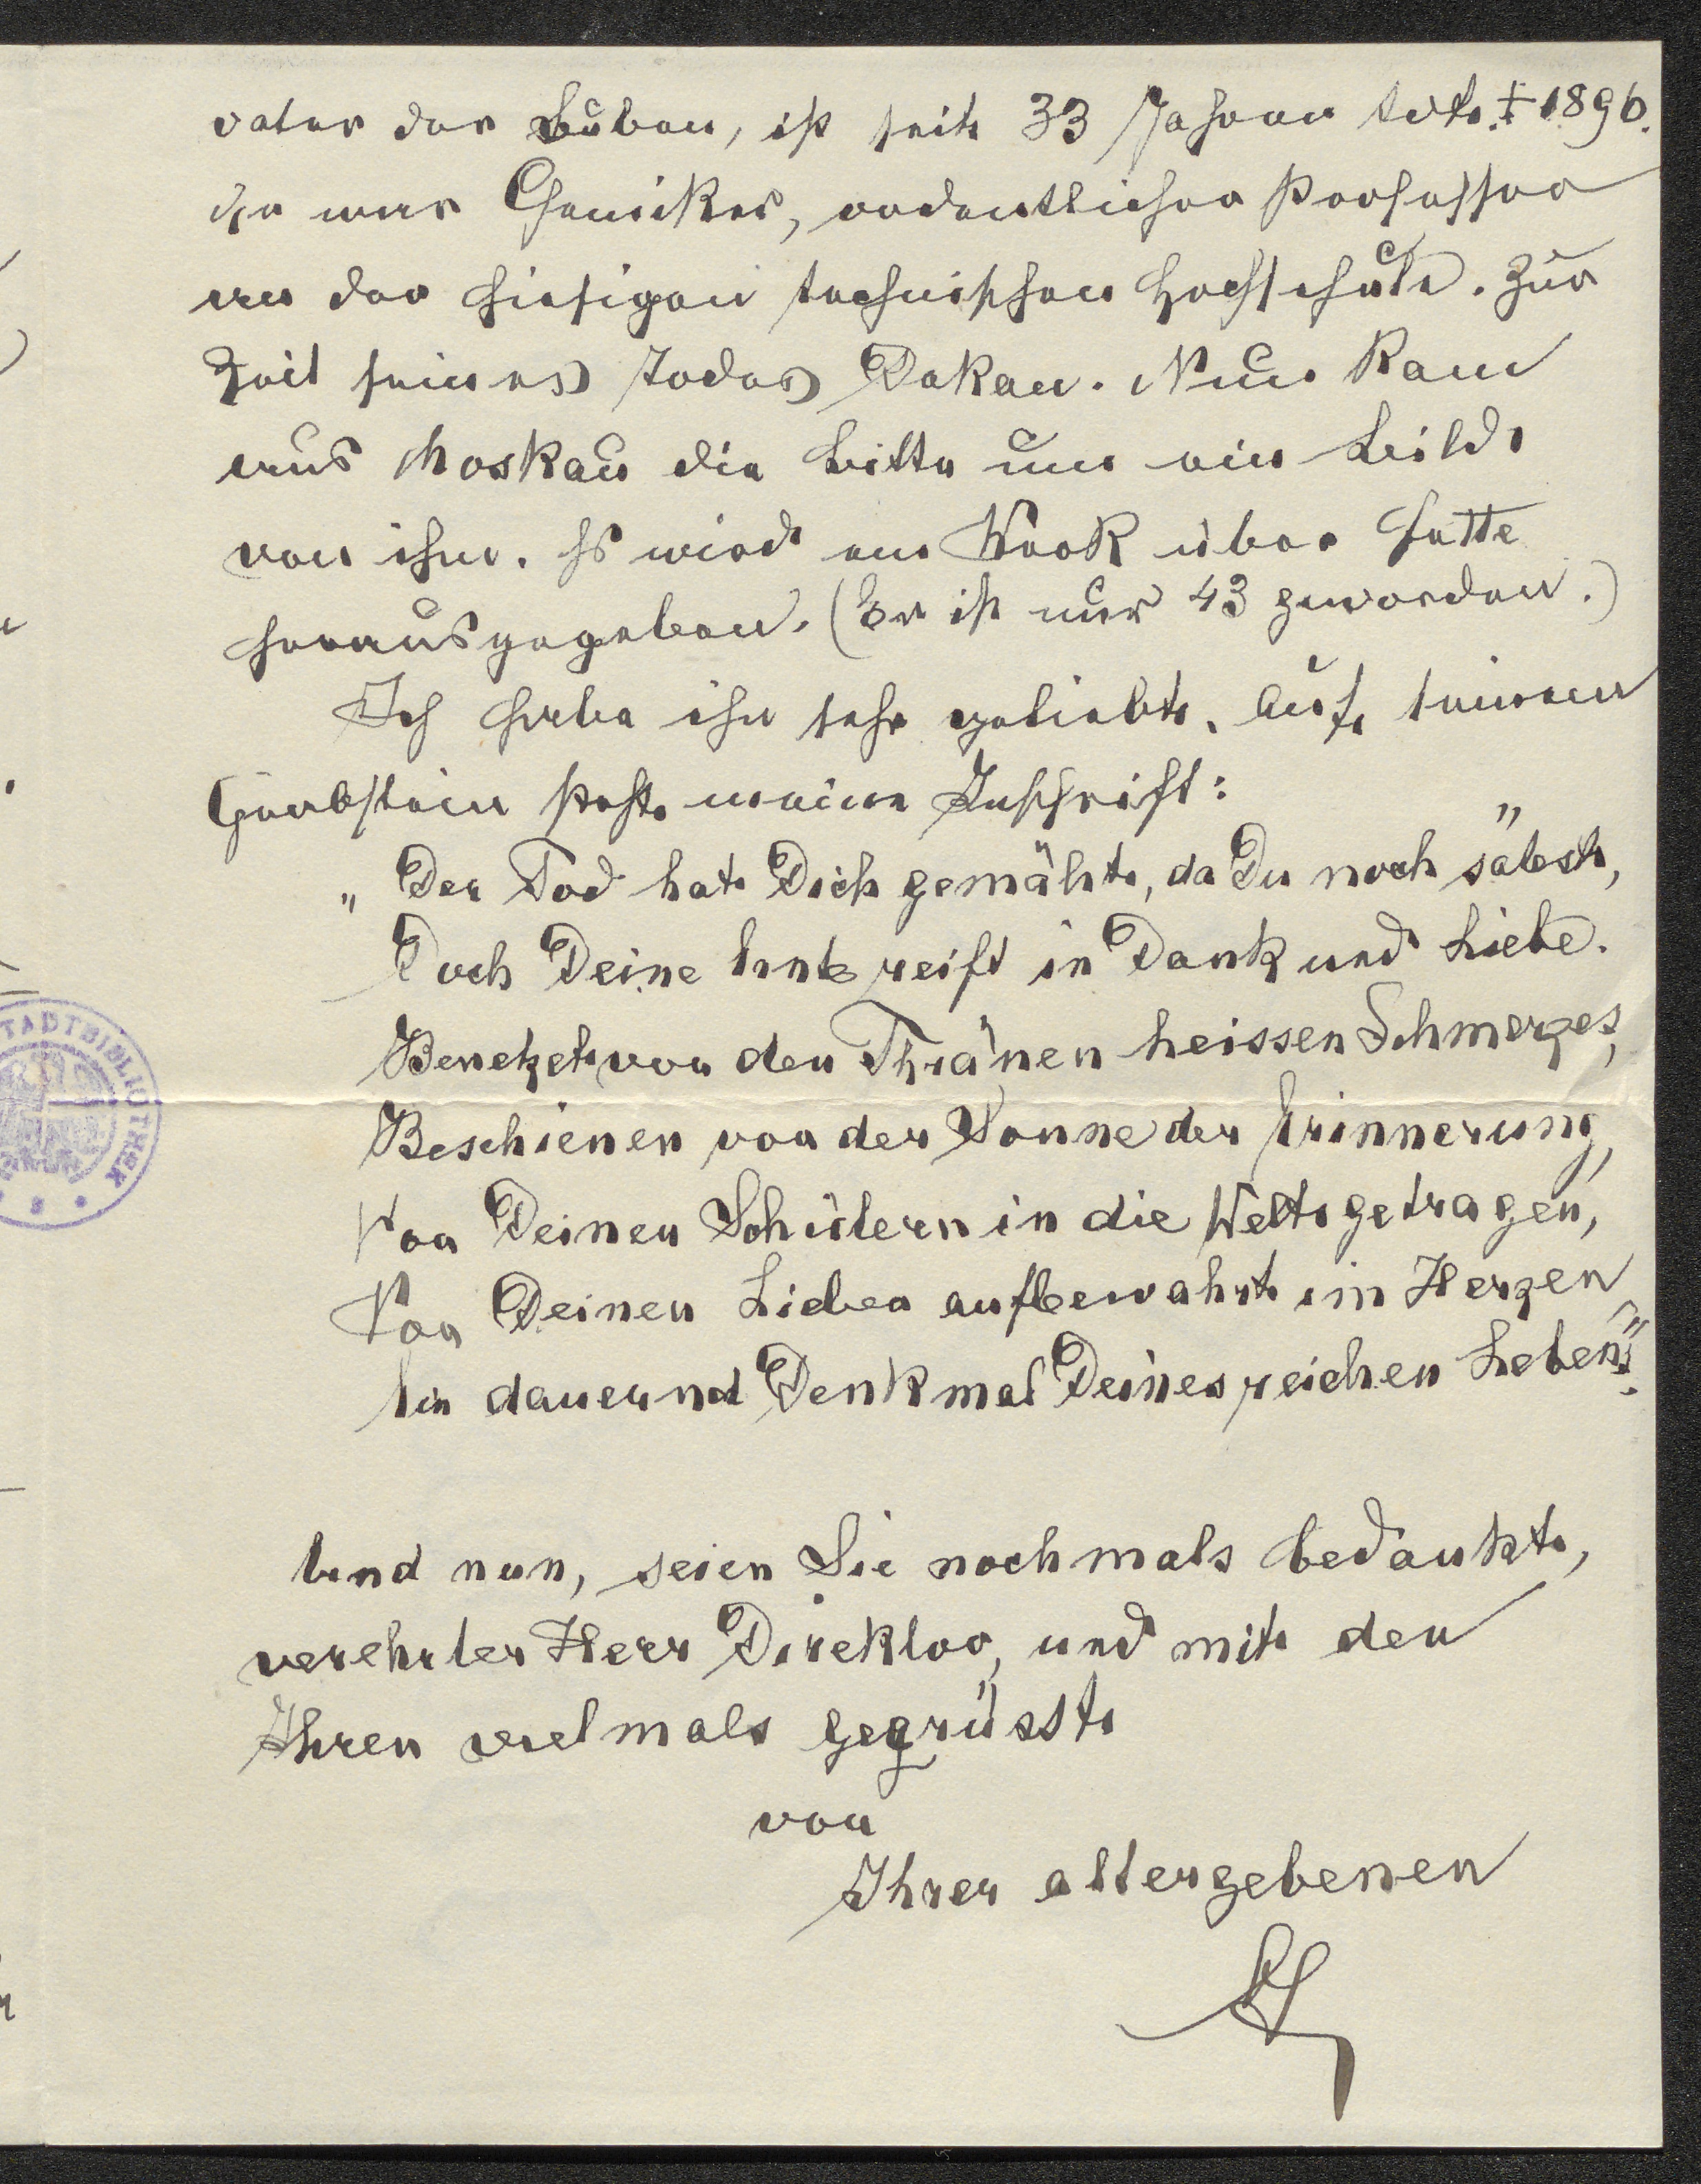 vater der Buben, ist seit 33 Jahren tot. † 1896.
Er war Chemiker, ordentlicher Professor
an der hiesigen technischen Hochschule. Zur
Zeit seines Todes Dekan. Nun kam
aus Moskau die Bitte um ein Bild
von ihm. Es wird ein Werk über Fette
herausgegeben. (Er ist nur 43 geworden.)
Ich habe ihn sehr geliebt. Auf seinem
Grabstein steht meine Inschrift:
„Der Tod hat Dich gemäht, da Du noch sätest,
Doch Deine Ernte reift in Dank und Liebe.
Benetzet von den Thränen heissen Schmerzes,
Beschienen von der Sonne der Erinnerung,
Von Deinen Schülern in die Welt getragen,
Von Deinen Lieben aufbewahrt im Herzen
Ein dauernd Denkmal Deines reichen Lebens“.
Und nun, seien Sie nochmals bedankt,
verehrter Herr Direktor, und mit den
Ihren vielmals gegrüsst
von
Ihrer altergebenen
STADTBIBLIOTHEK